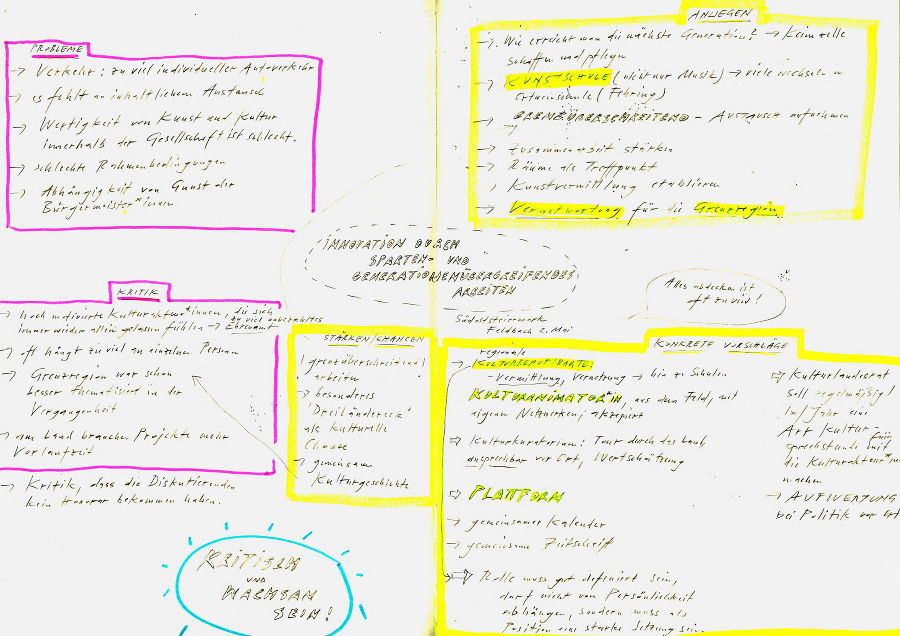 PROBLEME
→ Verkehr: zu viel individueller Autoverkehr
→ es fehlt an inhaltlichem Austausch
→ Wertigkeit von Kunst und Kultur
innerhalb der Gesellschaft ist schlecht.
→ schlechte Rahmenbedingungen
→ Abhängigkeit von Gunst der
Bürgermeister*innen
ANLIEGEN
→ Wie erreicht man die nächste Generation? → Keimzelle
schaffen und pflegen
→ KUNSTSCHULE (nicht nur Musik) → viele wechseln in
Ortweinschule (Fehring)
→ GRENZÜBERSCHREITEND – AUSTAUSCH aufnehmen
→ Zusammenarbeit stärken
→ Räume als Treffpunkt
→ Kunstvermittlung etablieren
→ Verantwortung für die Grenzregion
INNOVATION DURCH
SPARTEN- UND
GENERATIONENÜBERGREIFENDES
ARBEITEN
Südoststeiermark
Feldbach 2. Mai
Alles abdecken ist
oft zu viel!
KRITIK
→ hoch motivierte Kulturakteur*innen, die sich
immer wieder allein gelassen fühlen → zu viel unbezahltes
Ehrenamt
→ oft hängt zu viel an einzelnen Person
→ Grenzregion war schon
besser thematisiert in der
Vergangenheit
→ am Land brauchen Projekte mehr
Vorlaufzeit
→ Kritik, dass die Diskutierenden
kein Honorar bekommen haben.
STÄRKEN/CHANCEN
grenzüberschreitend
arbeiten
→ besonderes
"Dreiländereck"
als kulturelle
Chance
→ gemeinsam
Kulturgeschichte
KRITISCH
UND
WACHSAM
SEIN!
KONKRETE VORSCHLÄGE
regionale
→ KULTURBEAUFTRAGTE:
– Vermittlung, Vernetzung → bis zu Schulen
KULTURANIMATOR*IN, aus dem Feld, mit
eigenen Netzwerken, akzeptiert
⇨ Kulturkuratorium: Tour durch das Land
ansprechbar vor Ort, Wertschätzung
⇨ PLATTFORM
→ gemeinsamer Kalender
→ gemeinsame Zeitschrift
⇨ Rolle muss gut definiert sein,
darf nicht von Persönlichkeit
abhängen, sondern muss als
Position eine starke Setzung sein.
⇨ Kulturlandesrat
soll regelmäßig
1x/Jahr eine
Art Kultur-
sprechstunde mit
für
die Kulturakteur*innen
machen
→ AUFWERTUNG
bei Politik vor Ort